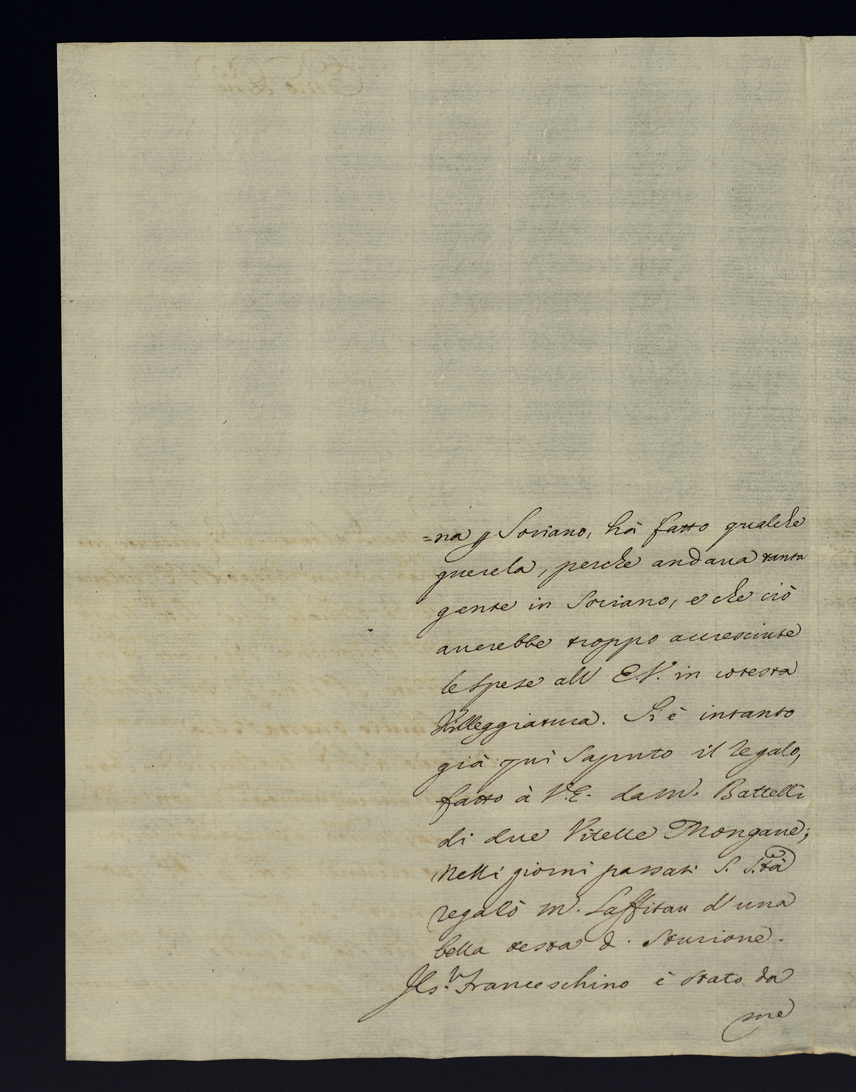 =na p Soriano, hà fatto qualche
querela, perche andaua tanta
gente in Soriano, e che ciò
auerebbe troppo accresciute
le spese all' E.V. in cotesta
Villeggiatura. Si è intanto
già quì saputo il regalo,
fatto à V.E. da M.r Battelli
di due Vitelle Mongane;
Nelli giorni passati S. S.tà
regalò M.r Laffitau d'una
bella testa d. Sturione.
Il s.r Franceschino è stato da
me